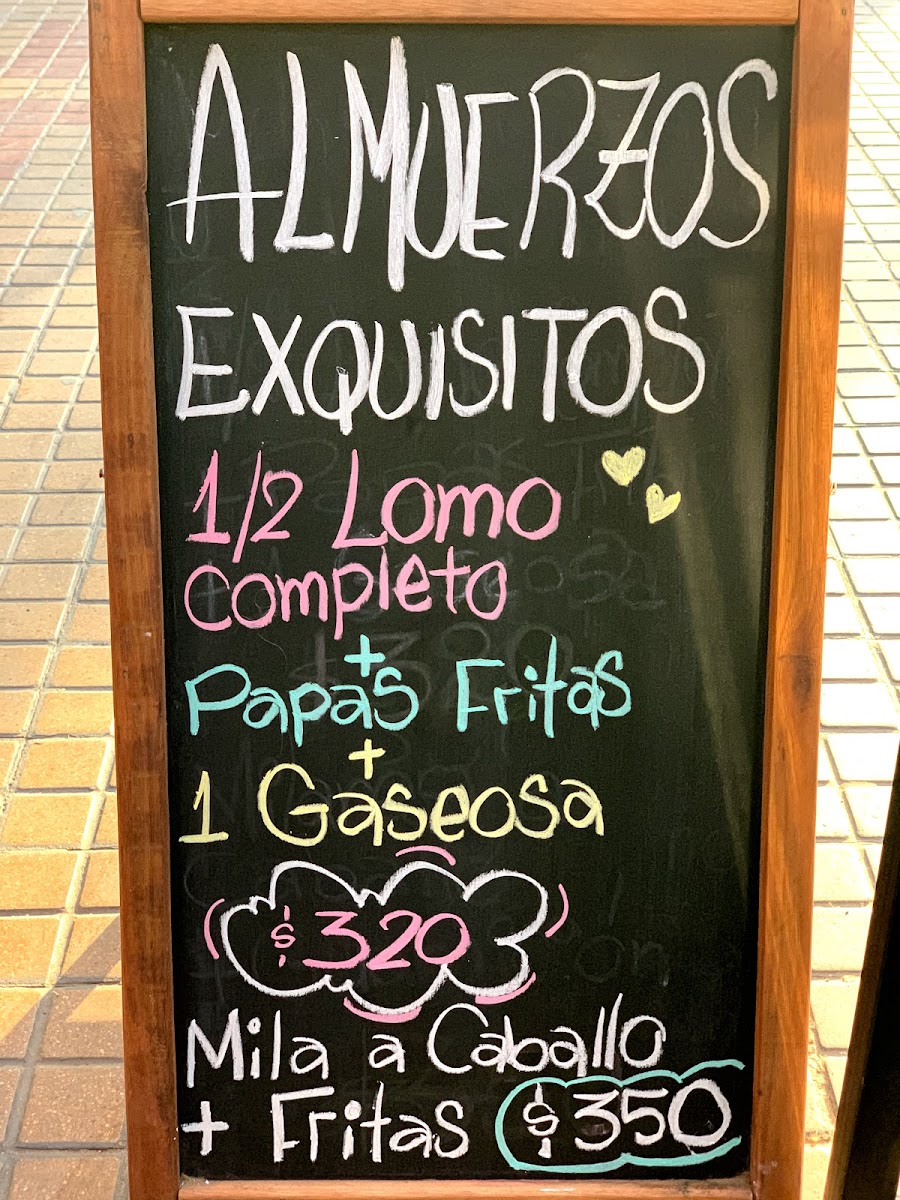 ALMUERZOS
EXQUISITOS
1/2 Lomo
Completo
+
Papas Fritas
+
1 Gaseosa
$320
Mila a Caballo
+ Fritas $350